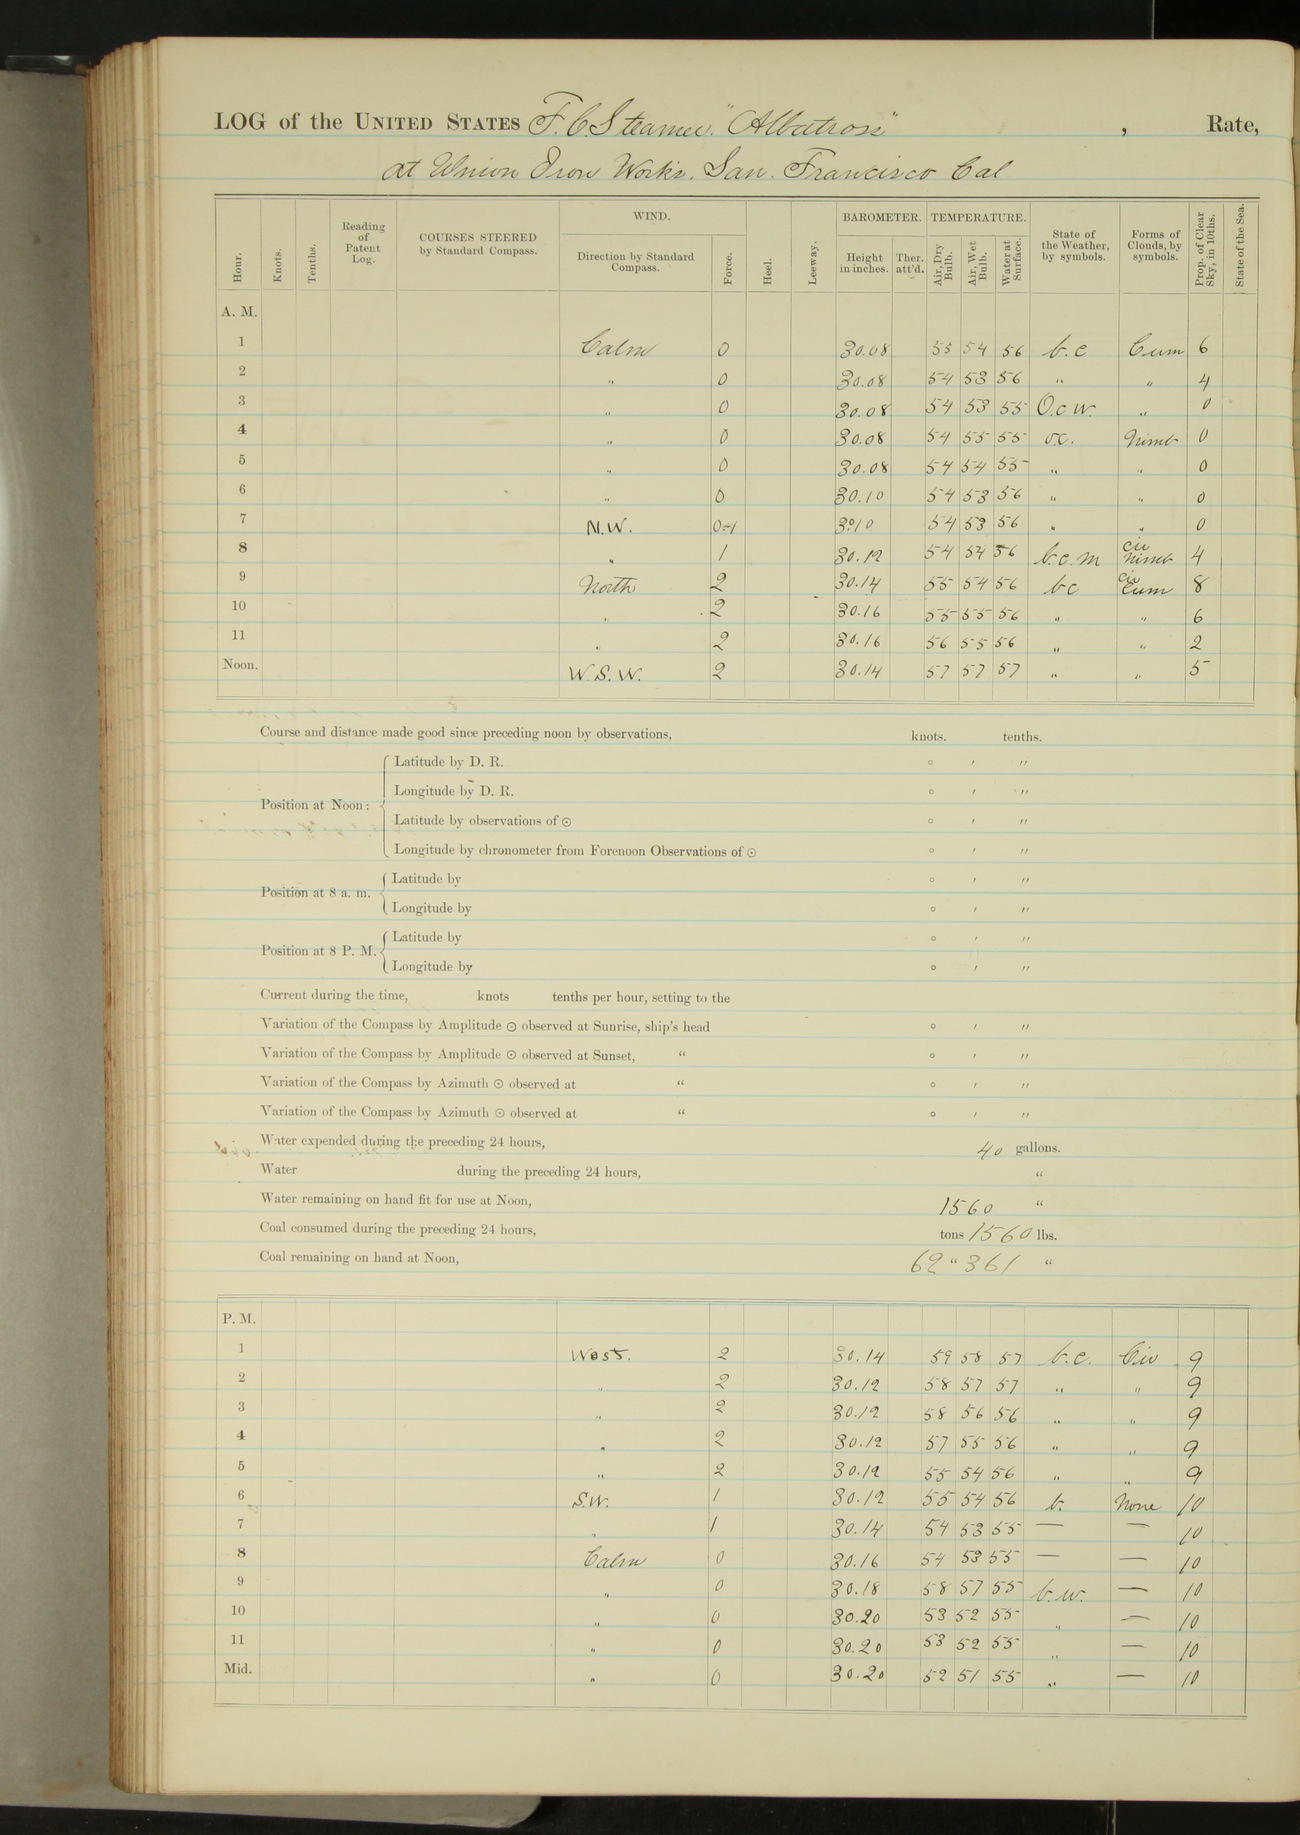 LOG of the UNITED STATES F. C Steamer "Albatross", Rate,
at Union Iron Works. San. Francisco Cal
Hour. Knots. Tenths. Reading of Patent Log. COURSES STEERED by Standard Compass. WIND. Direction by Standard Compass. Force. Heel. Leeway. BAROMETER. Height in inches. Ther. att'd. TEMPERATURE. Air, Dry Bulb. Air, Wet Bulb. Water at Surface. State of the Weather, by symbols. Forms of Clouds, by symbols. Prop. of Clear Sky, in 10ths. State of the Sea.
A. M.
1 Calm 0 30.08 55 54 56 b.c Cum 6
2 " 0 30.08 54 53 56 " " 4
3 " 0 30.08 54 53 55 O.c w. " 0
4 " 0 30.08 54 55 55 o.c. Nimb 0
5 " 0 30.08 54 54 55 " " 0
6 " 0 30.10 54 53 56 " " 0
7 N.W. 0-1 30.10 54 53 56 " " 0
8 " 1 30.12 54 54 56 b.c.m Cir Nimb 4
9 North 2 30.14 55 54 56 bc Cir Cum 8
10 " 2 30.16 55 55 56 " " 6
11 " 2 30.16 56 55 56 " " 2
Noon. W.S.W. 2 30.14 57 57 57 " " 5
Course and distance made good since preceding noon by observations, knots. tenths.
Position at Noon: Latitude by D. R. ° ′ ″
Longitude by D. R. ° ′ ″
Latitude by observations of ⊙ ° ′ ″
Longitude by chronometer from Forenoon Observations of ⊙ ° ′ ″
Position at 8 a. m. Latitude by ° ′ ″
Longitude by ° ′ ″
Position at 8 P. M. Latitude by ° ′ ″
Longitude by ° ′ ″
Current during the time, knots tenths per hour, setting to the
Variation of the Compass by Amplitude ⊙ observed at Sunrise, ship's head ° ′ ″
Variation of the Compass by Amplitude ⊙ observed at Sunset, " ° ′ ″
Variation of the Compass by Azimuth ⊙ observed at " ° ′ ″
Variation of the Compass by Azimuth ⊙ observed at " ° ′ ″
Water expended during the preceding 24 hours, 40 gallons.
Water during the preceding 24 hours, "
Water remaining on hand fit for use at Noon, 1560 "
Coal consumed during the preceding 24 hours, tons 1560 lbs.
Coal remaining on hand at Noon, 62 " 361 "
P. M.
1 West. 2 30.14 59 58 57 b.c. Cir 9
2 " 2 30.12 58 57 57 " " 9
3 " 2 30.12 58 56 56 " " 9
4 " 2 30.12 57 55 56 " " 9
5 " 2 30.12 55 54 56 " " 9
6 S.W. 1 30.12 55 54 56 b. None 10
7 " 1 30.14 54 53 55 — — 10
8 Calm 0 30.16 54 53 55 — — 10
9 " 0 30.18 58 57 55 b.w. — 10
10 " 0 30.20 53 52 55 " — 10
11 " 0 30.20 53 52 55 " — 10
Mid. " 0 30.20 52 51 55 " — 10